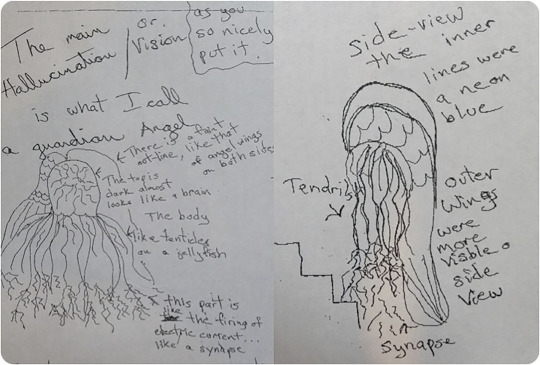 The main
Hallucination / or Vision
as you
so nicely
put it.
is what I call
a guardian Angel
There is a faint
outline, like that
of angel wings
on both sides
The top is
dark almost
looks like a brain
The body
like tenticles
on a jellyfish
this part is
like the firing of
electric current...
like a synapse
side-view
the inner
lines were
a neon
blue
Tendrils
outer
wings
were
more
visible
side
view
synapse